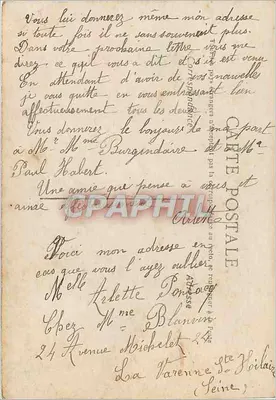 Vous lui donnerez même mon adresse
si toute fois il ne s'en souvenait plus.
Dans votre prochaine lettre vous me
direz ce qu'il vous a dit et s'il est venu
En attendant d'avoir de vos nouvelles
je vous quitte en vous embrassant bien
affectueusement tous les deux.
Vous donnerez le bonjour de ma part
à Mr Mme Burgendaire et Mr
Paul Habert.
Une amie que pense à vous et
aimée
Arlette
Voici mon adresse en
cas que vous l'ayez oublier
Melle Arlette
Chez Mme Blanvin
24 Avenue Michelet 24
La Varenne Ste Hilaire
(Seine)
CARTE POSTALE
Correspondance
Adresse
CPAPHIL